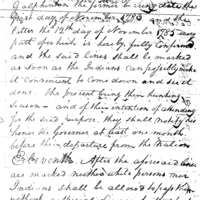 Galphinton the former of being date the
first day of November 1785 and the
latter the 12th day of November 1785 every
part of which is hereby fully confirmed
and the said Lines shall be marked
as soon as the Indians can possibly make
it convenient to come down and see it
done. the present being their hunting
Season — and of their intention of attending
for the said purpose, they shall notify his
honor the Governor at least one month
before their departure from the Nation
Eleventh. After the aforesaid Lines
are marked neither white persons nor
Indians shall be allowed to pass them
without